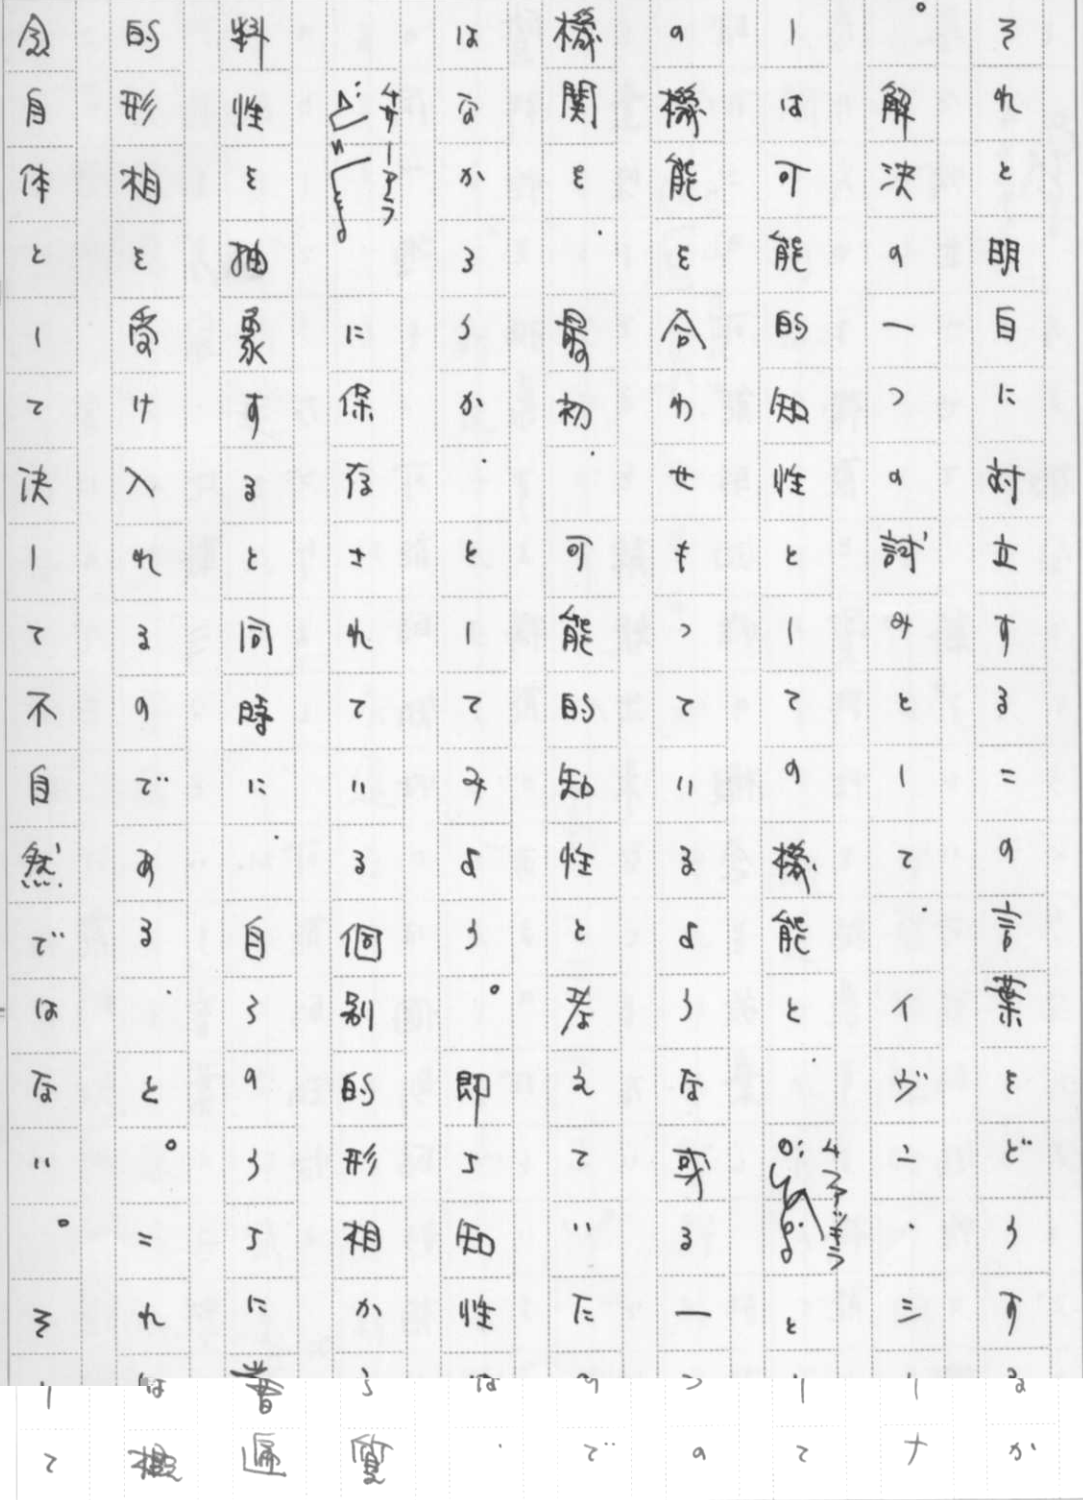 それと明白に対立するこの言葉をどうするか
。解決の一つの試みとして、イヴン・シーナ
しは可能的知性としての機能と、として
の機能を合わせもっているような或る一つの
機関を、最初、可能的知性と考えていたので
はなかろうか、としてみよう。即ち知性は、
に保存されている個別的形相から質
料性を抽象すると同時に、自らのうちに普遍
的形相を受け入れるのであると。これは概
念自体として決して不自然ではない。そして